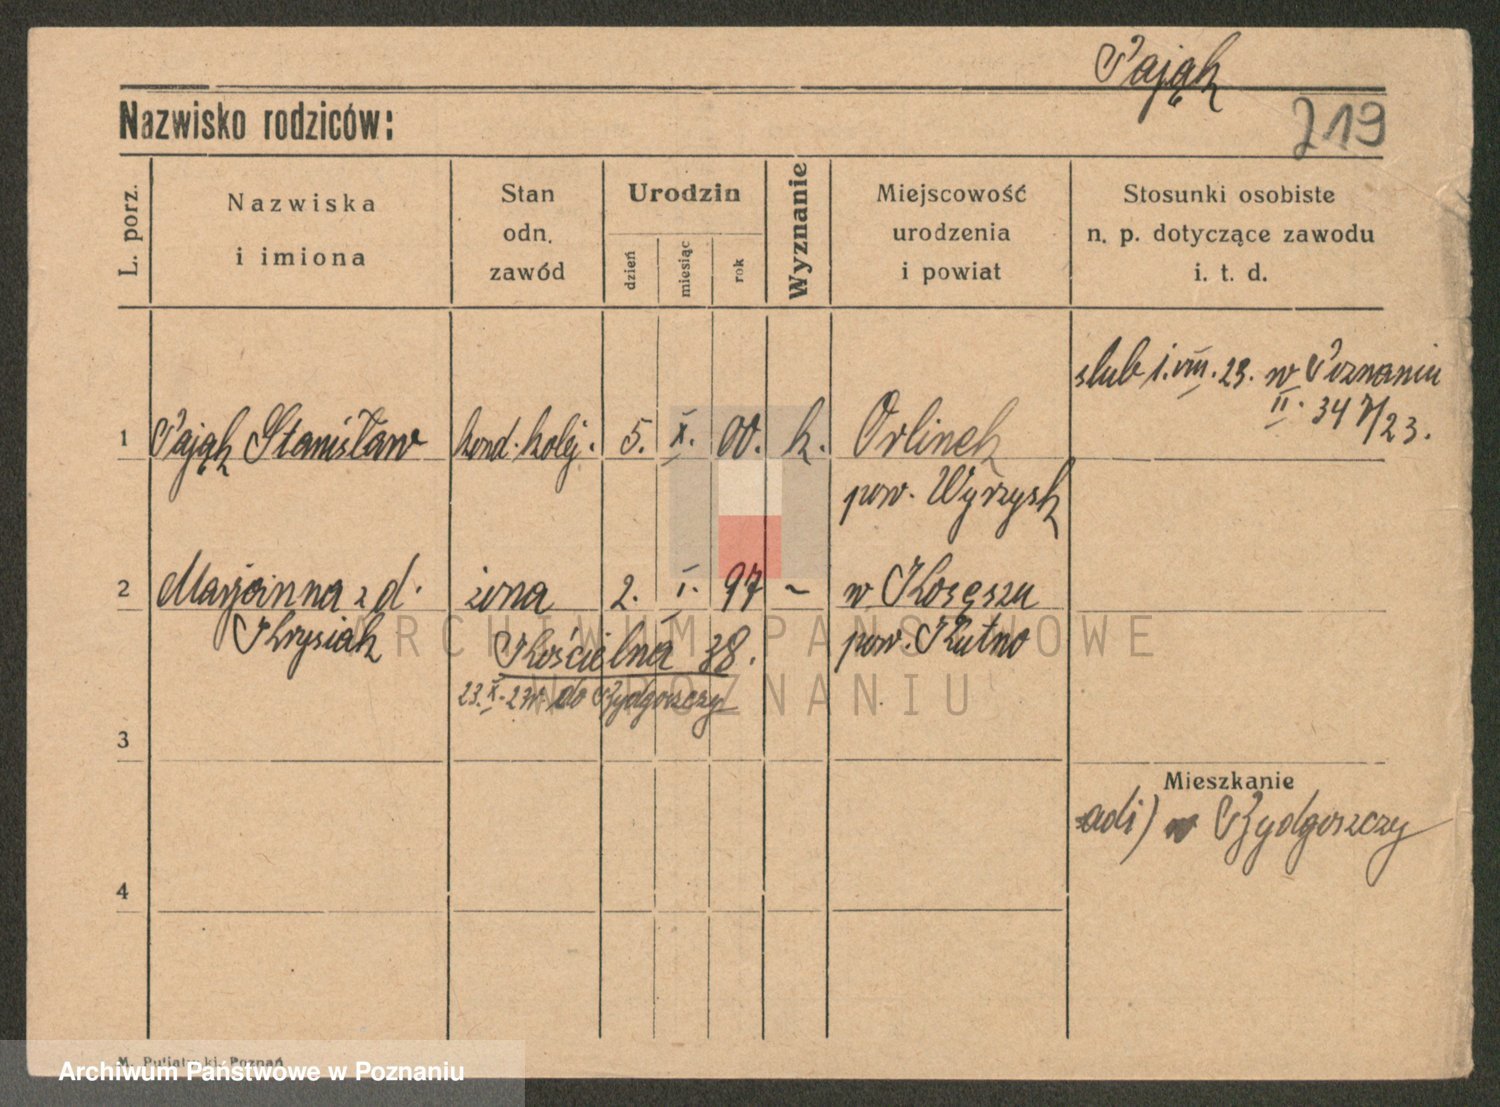 Pająk
219
Nazwisko rodziców:
L. porz.
Nazwiska
i imiona
Stan
odn.
zawód
Urodzin
dzień
miesiąc
rok
Wyznanie
Miejscowość
urodzenia
i powiat
Stosunki osobiste
n. p. dotyczące zawodu
i. t. d.
ślub 1. VIII. 23. w Poznaniu
II. 347/23.
1 Pająk Stanisław kond. kolej. 5. X. 00. k. Orlinek
pow. Wyrzysk
2 Marjanna z d. żona 2. I. 97 – w
Krysiak Kościelna 38. pow. Kutno
23. X. 23 r. do Bydgoszczy
3
Mieszkanie
w Bydgoszczy
4
ARCHIWUM PAŃSTWOWE
W POZNANIU
Poznań
Archiwum Państwowe w Poznaniu